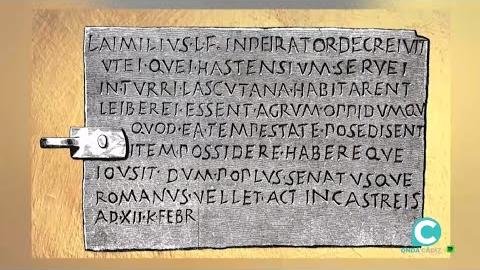 L·AIMILIUS·L·F·INPEIRATOR·DECREIVIT
VTEI·QVEI·HASTENSIVM·SERVEI
IN·TVRRI·LASCVTANA·HABITARENT
LEIBEREI·ESSENT·AGRVM·OPPIDVMQV
QVOD·EA·TEMPESTATE·POSEDISENT
ITEM·POSSIDERE·HABEREQUE
IOVSIT·DVM·POPLVS·SENATVSQVE
ROMANVS·VELLET·ACT·IN·CASTREIS
A·D·XII·K·FEBR
ONDA CÁDIZ